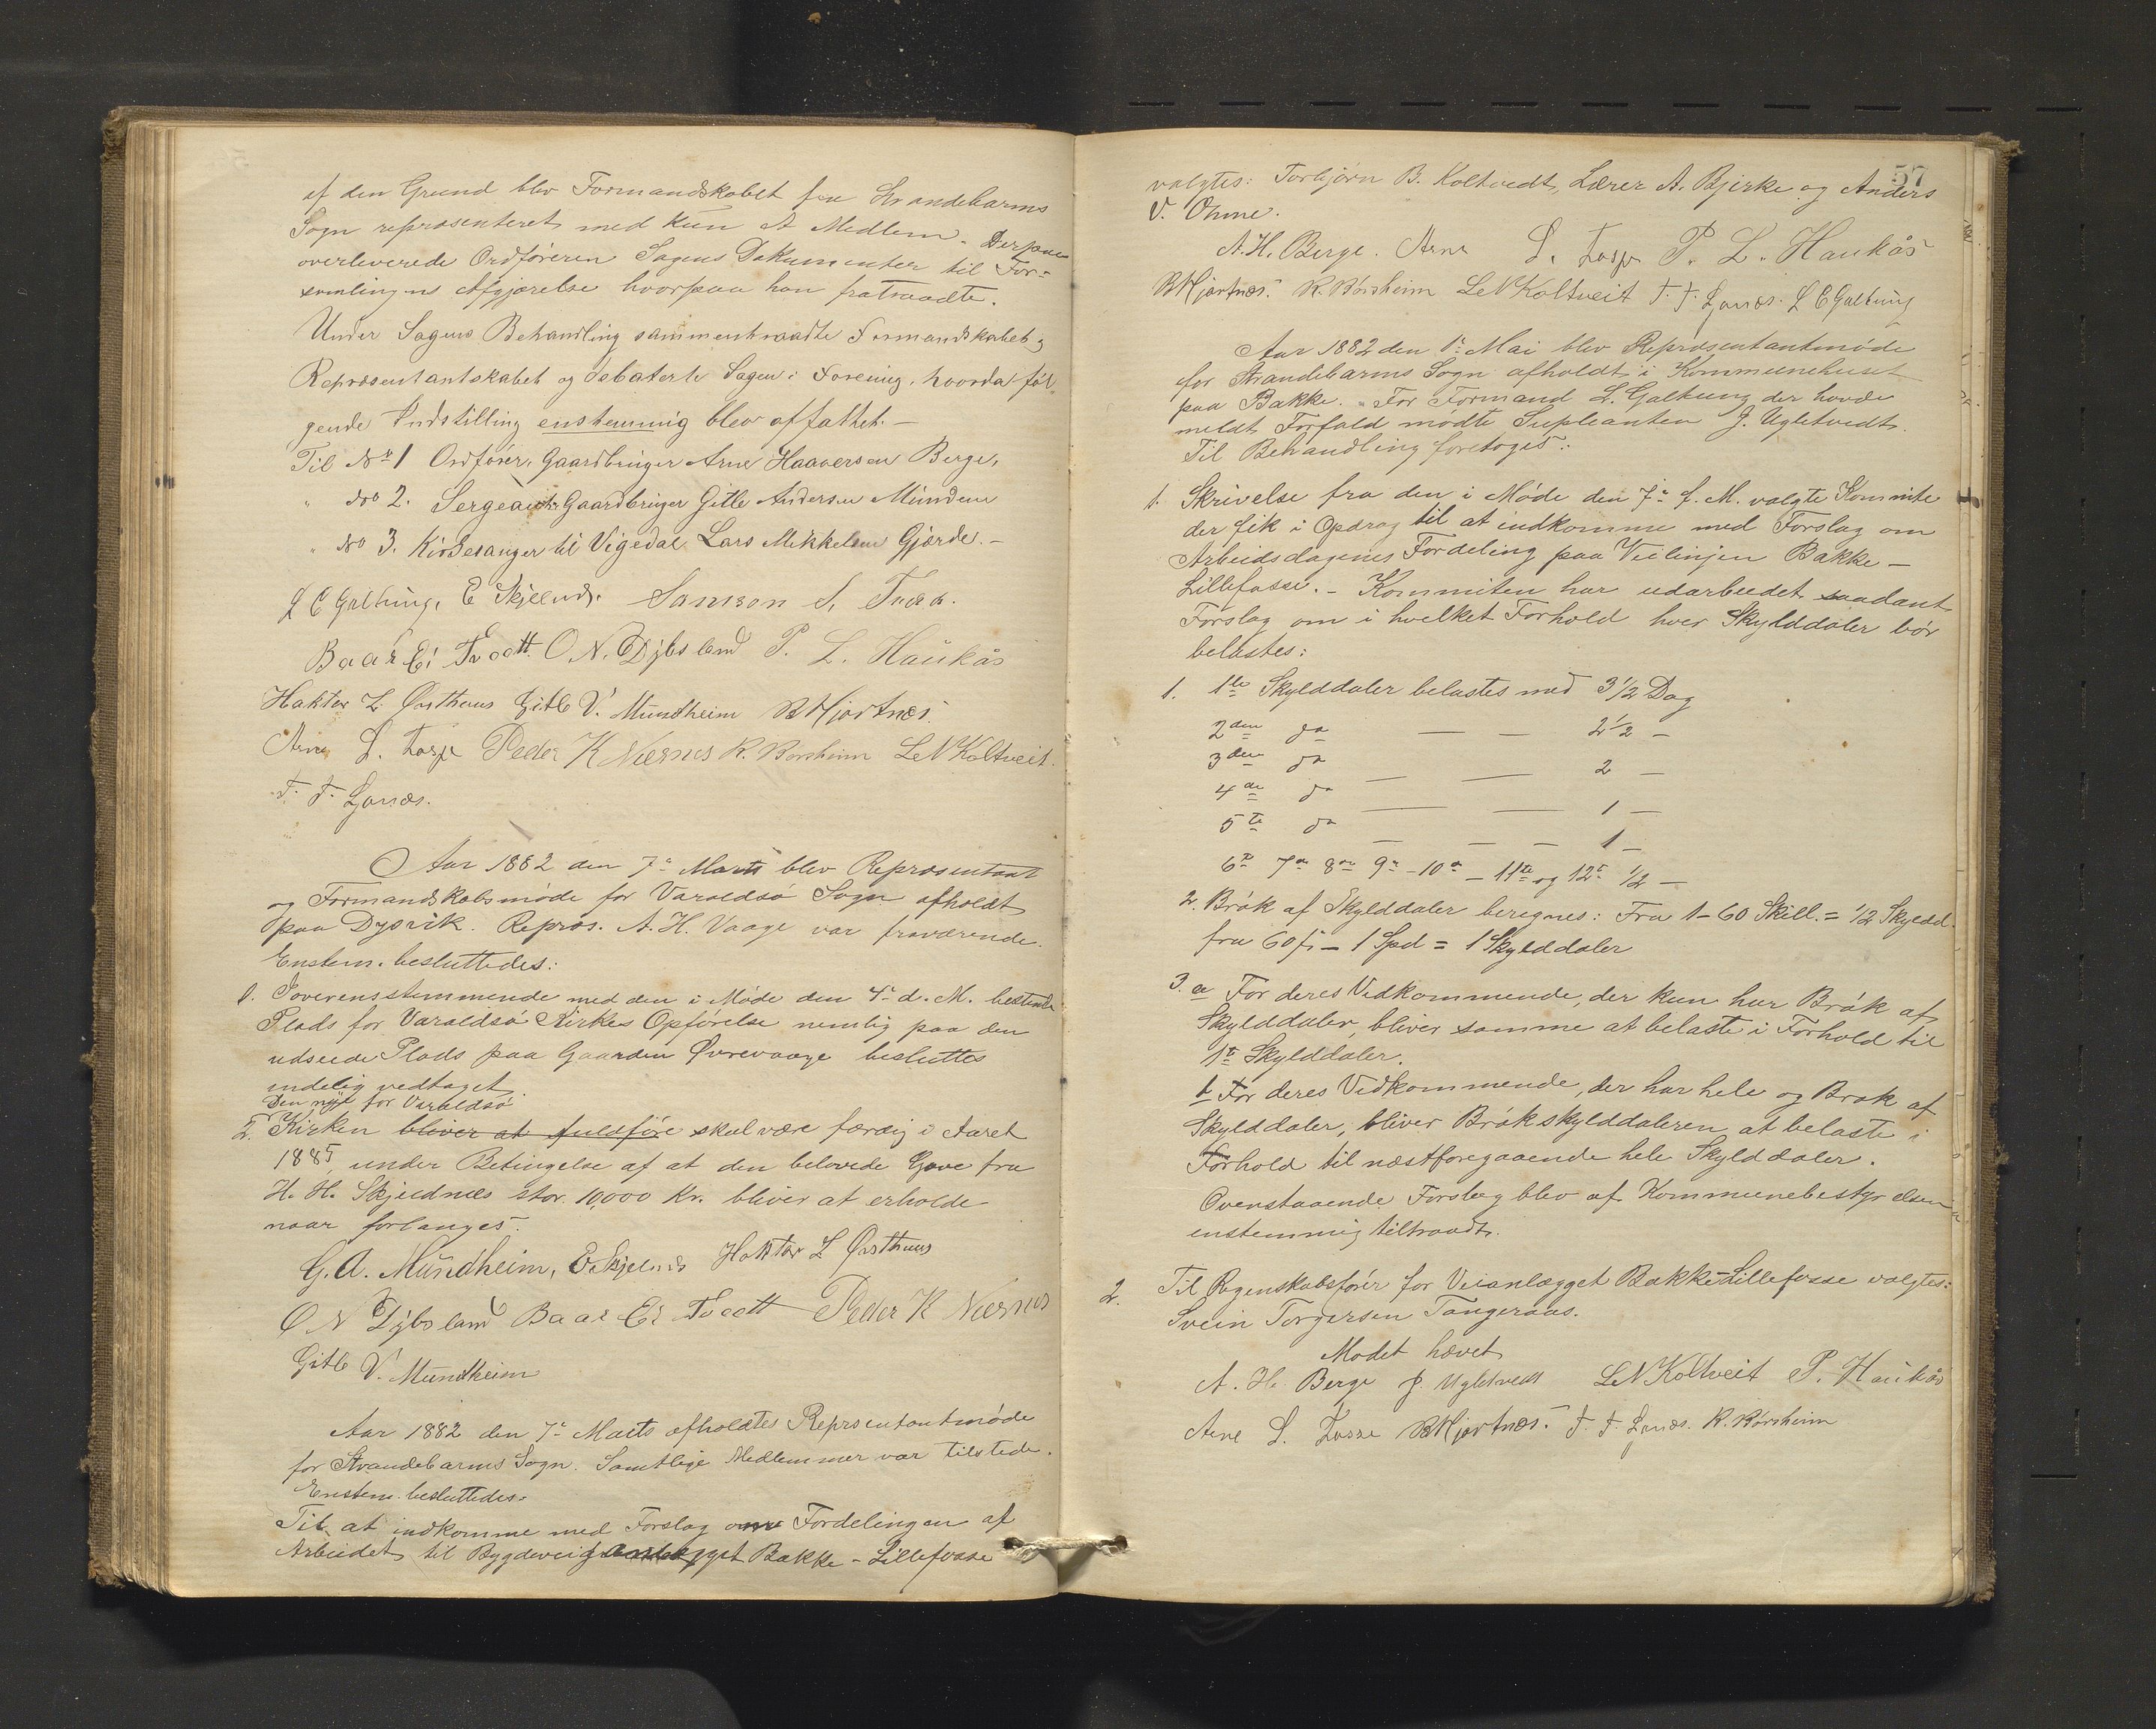 af den Grund blev Formandskabet fra Strandebarms
Sogn repræsenteret med kun et Medlem. Derpaa
overleverede Ordføreren Sagens Dokumenter til For-
samlingens Afgjørelse hvorpaa han fratraadte.
Under Sagens Behandling sammentraadte Formandskabet og
Repræsentantskabet og debaterte Sagen i Forening, hvorda føl
gende Indstilling enstemmig blev affattet. —
Til No 1 Ordfører, Gaardbruger Arne Haaversen Berge,
" No 2. Sergeant Gaardbruger Gitle Andersen Mundem
" No 3. Kirkesanger til Vigedal Lars Mikkelsen Gjærde. —
L E Galtung, E Skjelnds. Samson S.
Baar Ei Tvedt. O. N. Djbsland P. L. Haukås
Haktor L Østhuus Gitle V. Mundheim B Hjortnæs.
Arne L. Fosse Peder K Nærnes K. Børsheim LeNKoltveit.
T. T. Lønæs.
Aar 1882 den 7de Marts blev Repræsentant
og Formandskabsmøde for Varaldsø Sogn afholdt
paa Dysvik. Repræs. A. H. Vaage var fraværende.
Enstem. besluttedes:
1. Overensstemmende med den i Møde den 4de d. M. bestemte
Plads for Varaldsø Kirkes Opførelse nemlig paa den
udseede Plads paa Gaarden Øvrevaage besluttes
endelig vedtaget.
Den nye for Varaldsø
2. Kirken bliver at fuldføre skal være færdig i Aaret
1885, under Betingelse af at den belovede Gave fra
H. H. Skjeldnæs stor 10,000 Kr. bliver at erholde
naar forlanges.
G. A. Mundheim, E Skjelnds Haktor L Østhuus
O N Djbsland Baar Ei Tvedt Peder K Nærnes
Gitle V. Mundheim
Aar 1882 den 7de Marts afholdtes Repræsentantmøde
for Strandebarms Sogn. Samtlige Medlemmer var tilstede.
Enstem. besluttedes:
Til at indkomme med Forslag om Fordelingen af
Arbeidet til Bygdeveianlægget Bakke - Lillefosse
57
valgtes: Torbjørn B. Koltvedt, Lærer A. Bjerke og Anders
V. Ohme.
A. H. Berge. Arne L. Fosse P. L. Haukås
B Hjortnæs. K. Børsheim LeNKoltveit T. T. Lønæs. L E Galtung
Aar 1882 den 1de Mai blev Repræsentantmøde
for Strandebarms Sogn afholdt i Kommunehuset
paa Bakke. For Formand L. Galtung der havde
meldt Forfald mødte Supleanten J. Ugletvedt.
Til Behandling foretoges:
1. Skrivelse fra den i Møde den 7de f. M. valgte Kommite
der fik i Opdrag til at indkomme med Forslag om
Arbeidsdagenes Fordeling paa Veilinjen Bakke —
Lillefosse. — Kommiten har udarbeidet saadant
Forslag om i hvilket Forhold hver Skylddaler bør
belastes:
1. 1ste Skylddaler belastes med 3 1/2 Dag
2den do — — 2 1/2 —
3die do — — 2 —
4de do — — 1 —
5te do — — — 1 —
6te 7de 8de 9de - 10de - 11te og 12te 1/2 —
2. Brøk af Skylddaler beregnes: Fra 1 - 60 Skill. = 1/2 Skyldd.
fra 60 ß - 1 Spd = 1 Skylddaler
3. a For deres Vedkommende, der kun har Brøk af
Skylddaler, bliver samme at belaste i Forhold til
1ste Skylddaler.
b For deres Vedkommende, der har hele og Brøk af
Skylddaler, bliver Brøkskylddaleren at belaste i
Forhold til næstforegaaende hele Skylddaler.
Ovenstaaende Forslag blev af Kommunebestyrelsen
enstemmig tiltraadt.
2. Til Regnskabsfører for Veianlægget Bakke-Lillefosse valgtes:
Svein Torgersen Tangeraas.
Mødet hævet
A. H. Berge J. Ugletvedt LeNKoltveit P. Haukås
Arne L. Fosse B Hjortnæs. T. T. Lønæs. K. Børsheim